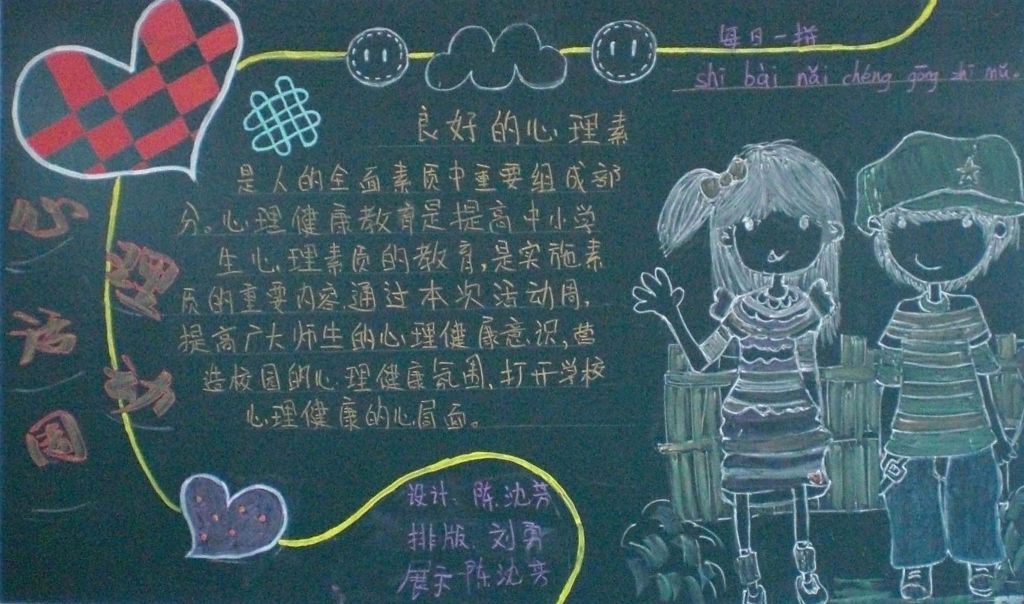 每日一拼
shī bài nǎi chéng gōng zhī mǔ。
心理活动周
良好的心理素
是人的全面素质中重要组成部
分。心理健康教育是提高中小学
生心理素质的教育,是实施素
质的重要内容通过本次活动周,
提高广大师生的心理健康意识,营
造校园的心理健康氛围,打开学校
心理健康的心局面。
设计、陈沈芳
排版、刘勇
展示、陈沈芳